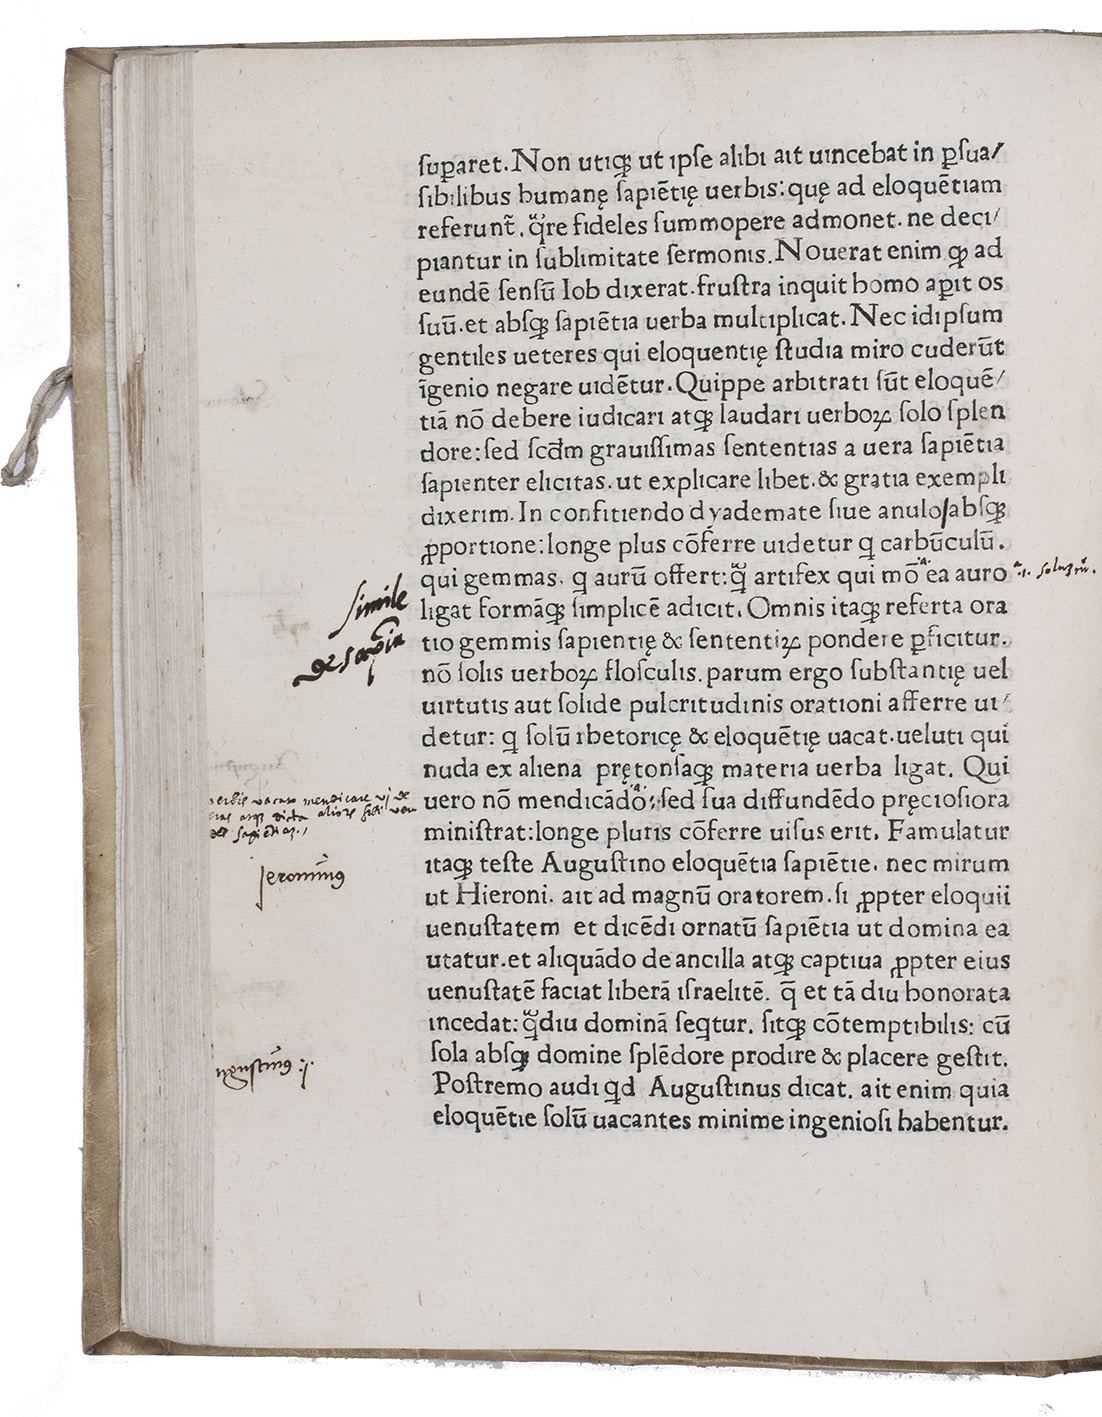 ſuꝑaret. Non utiqꝫ ut ipſe alibi ait uincebat in ꝑſua/
ſibilibus humanę ſapiētię uerbis: quę ad eloquētiam
referunt᷑. q̈re fideles ſummopere admonet. ne deci/
piantur in ſublimitate ſermonis. Nouerat enim ꝙ ad
eundē ſensū Iob dixerat. fruſtra inquit homo aꝑit os
ſuū. et abſqꝫ ſapiētia uerba multiplicat. Nec idipſum
gentiles ueteres qui eloquentię ſtudia miro cuderūt
īgenio negare uidētur. Quippe arbitrati ſūt eloquē/
tiā nō debere iudicari atqꝫ laudari uerboꝝ ſolo ſplen
dore: ſed ſcd̄m grauiſſimas ſententias a uera ſapiētia
ſapienter elicitas. ut explicare libet. & gratia exempli
dixerim. In confitiendo dyademate ſiue anulo/abſqꝫ
ꝓportione: longe plus cōferre uidetur q carbūculū.
qui gemmas. q aurū offert: q̈ artifex qui mō ea auro
ligat formāqꝫ ſimplicē adicit. Omnis itaqꝫ referta ora
tio gemmis ſapientię & ſententiꝝ pondere ꝑficitur.
nō ſolis uerboꝝ floſculis. parum ergo ſubſtantię uel
uirtutis aut ſolide pulcritudinis orationi afferre ui/
detur: q ſolū rhetoricę & eloquētię uacat. ueluti qui
nuda ex aliena prętonſaqꝫ materia uerba ligat. Qui
uero nō mendicādo: ſed ſua diffundēdo pręcioſiora
miniſtrat: longe pluris cōferre uiſus erit. Famulatur
itaqꝫ teſte Auguſtino eloquētia ſapiētie. nec mirum
ut Hieroni. ait ad magnū oratorem. ſi ꝓpter eloquii
uenuſtatem et dicēdi ornatū ſapiētia ut domina ea
utatur. et aliquādo de ancilla atqꝫ captiua ꝓpter eius
uenuſtatē faciat liberā iſraelitē. q̄ et tā diu honorata
incedat: q̈diu dominā ſeqtur. ſitqꝫ cōtemptibilis: cū
ſola abſqꝫ domine ſplēdore prodire & placere geſtit.
Poſtremo audi qd Auguſtinus dicat. ait enim quia
eloquētie ſolū uacantes minime ingenioſi habentur.
ſimile
de sapīa
Jeronimus